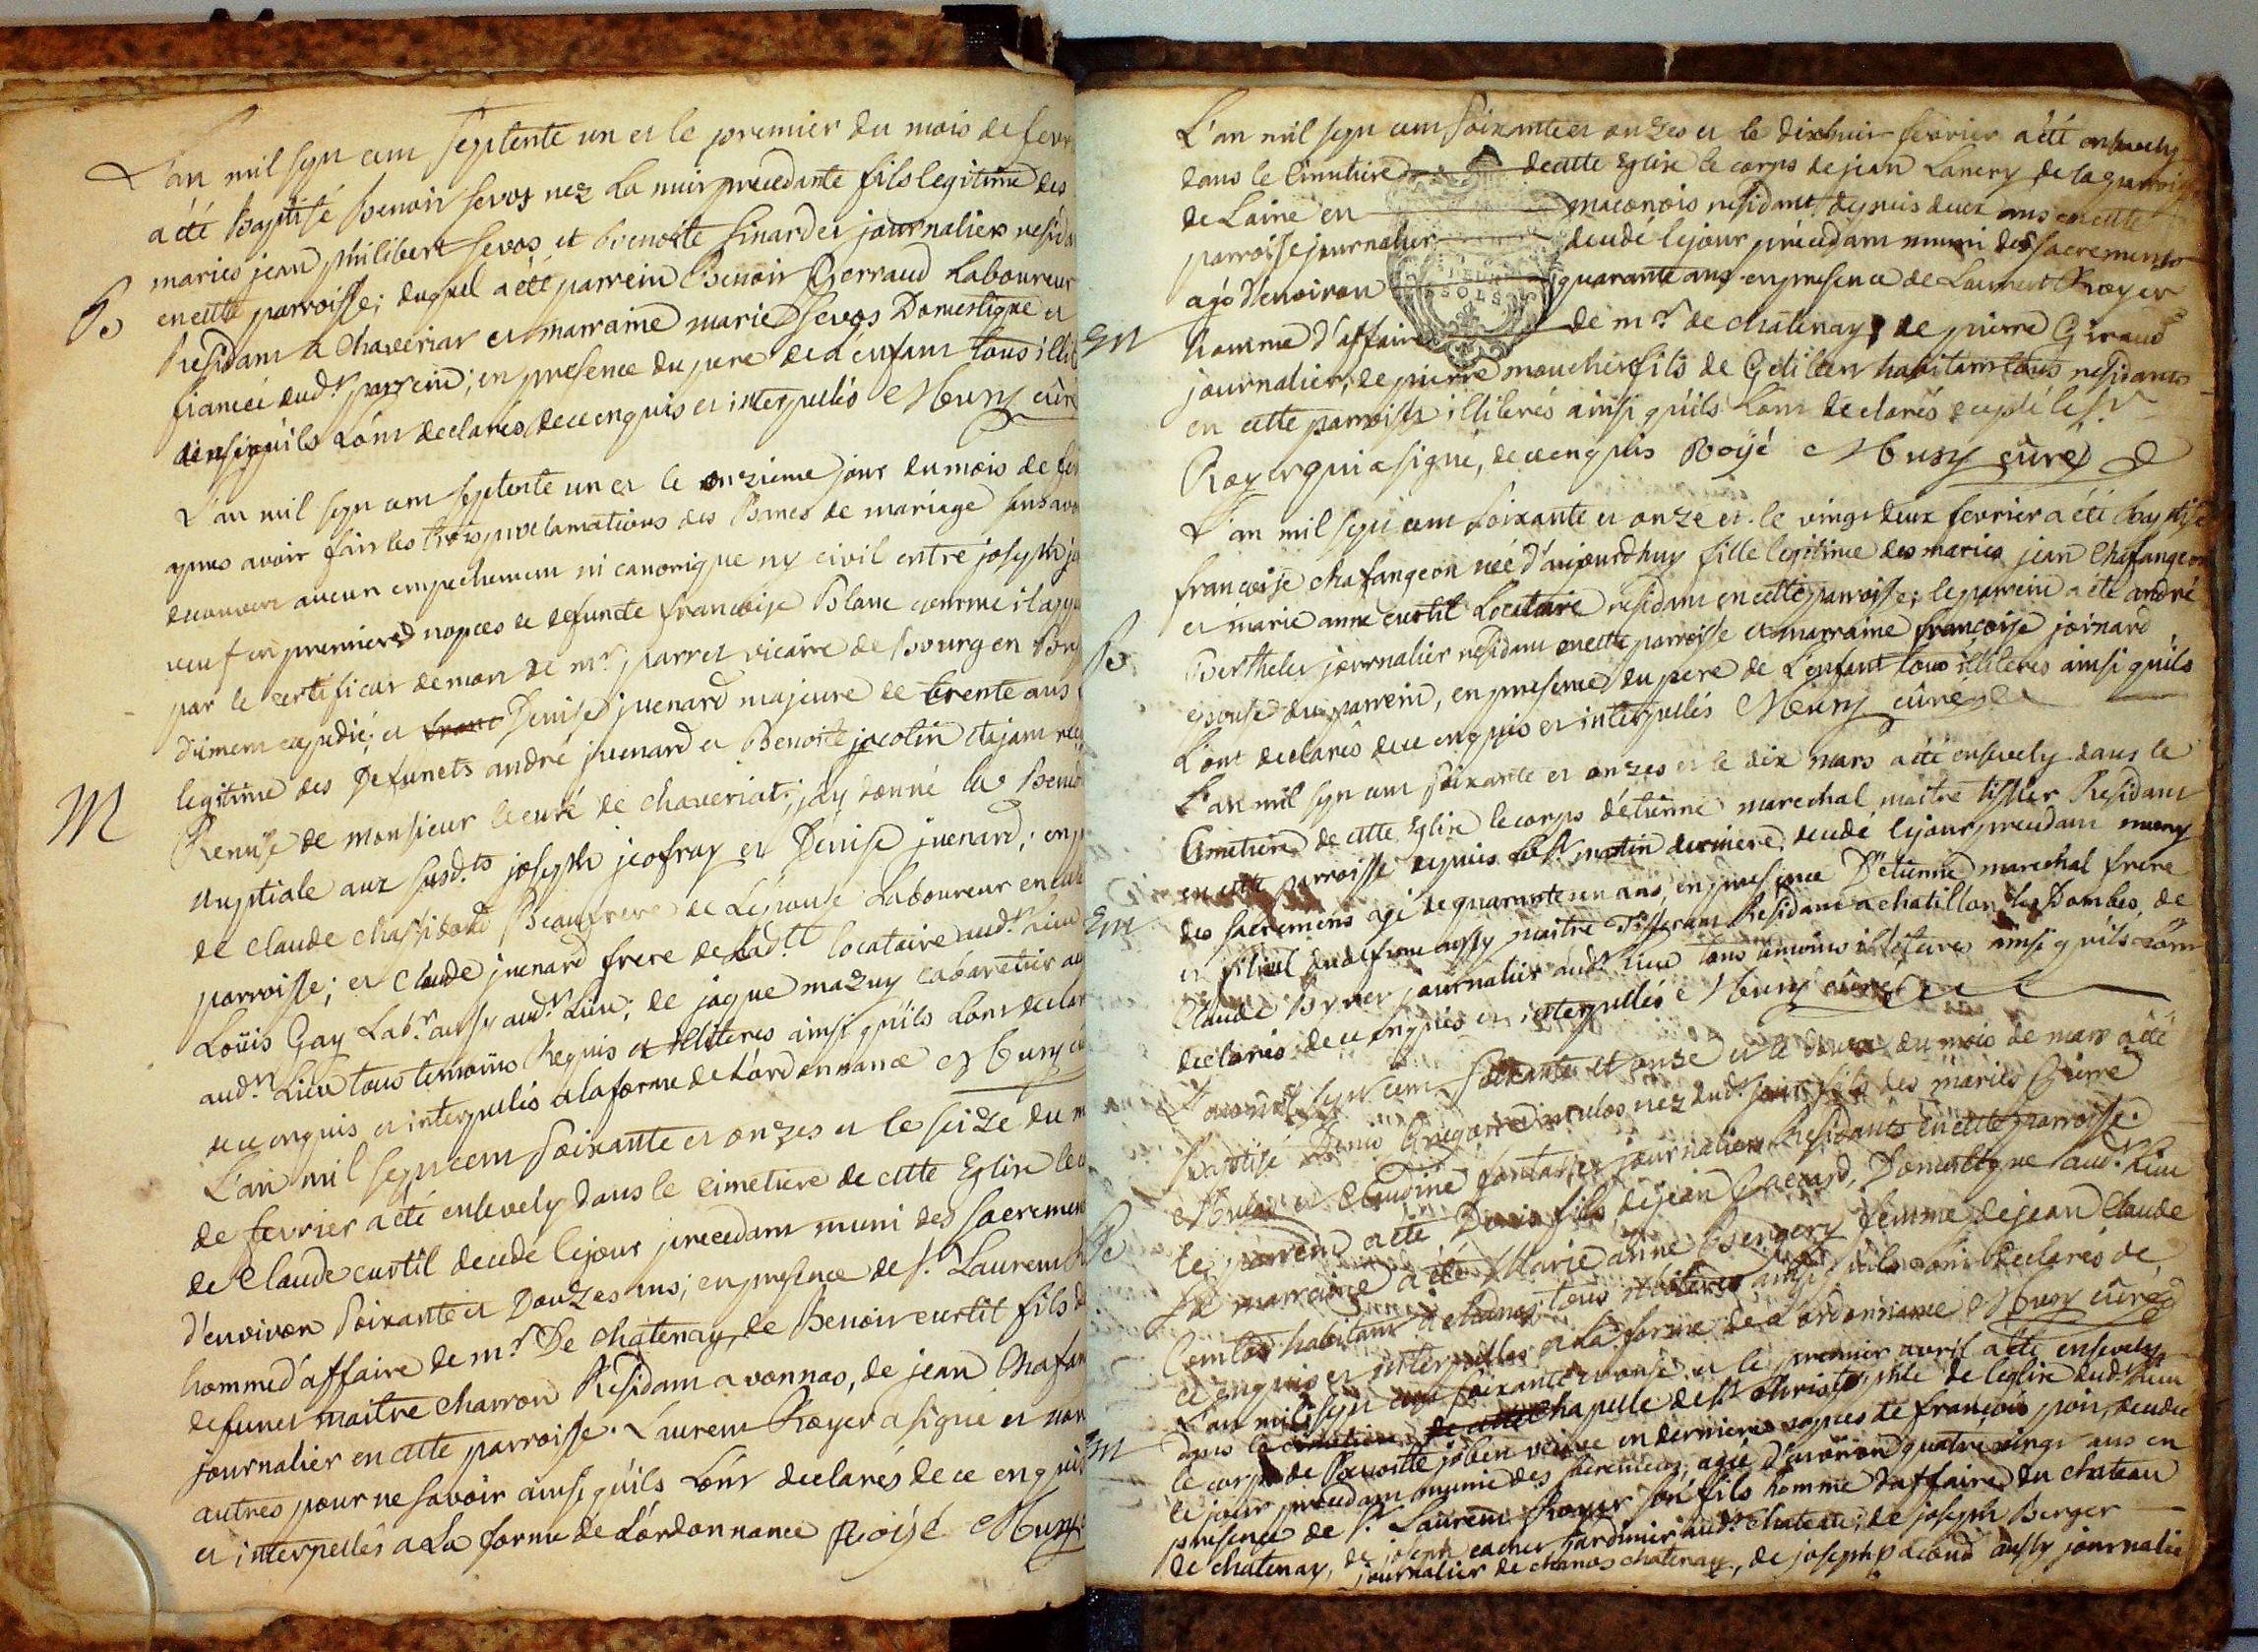 L'an mil sept cent septente un et le premier du mois de fevr
a été Baptisé Benoit sevos nez La nuit precedante fils legitime des
maries jean philibert sevos et Benoite sinard et journaliers resida
B
en cette parroisse; duquel a été parrein Benoit Perraud Laboureur
Residant a Chaveriat et marraine marie sevos Domestique et
fiancée dud.t parrein; en presence du pere de l'enfant tous illit
ainsi qu'ils L'ont declarés de ce enquis et interpellés Muny curé
L'an mil sept cent septente un et le onzieme jour du mois de fev
apres avoir fait les trois proclamations des Bancs de mariage sans avoir
decouvert aucun empechement ni canonique ny civil entre joseph je
veuf en premiere nopces de defuncte francoise Blanc comme il appe
par le certificat de mort de m.r parret vicaire de Bourg en Bre
dument expedié; et Denise juenard majeure de trente ans
legitime des Defunets andré juenard et Benoite jacotin étajant re
M
Remise de monsieur le curé de chaveriat; jay donné la Bened
nuptiale aux susd.ts joseph jeofray et Denise juenard; en p
de Claude Chassidard Beaufrere de L'épouse Laboureur en cette
parroisse; et Claude juenard frere de lad.tt locataire aud.t lieu
Loüis Gay Lab.r aussy aud.t Lieu; de jaque mazuy cabaretier au
aud.t Lieu tous temoins Requis et illiteres ainsi qu'ils Lont declar
de ce enquis et interpellés a la forme de L'ordonnance Muny cu
L'an mil sept cent soixante et onzes et le seize du m
de fevrier a été ensevely dans le cimetiere de cette Eglise le c
de Claude curtil decedé le jour precedant muni des sacremen
d'environ soixante et Douzes ans; en presence de s.r Laurent R
homme d'affaire de m.r De chatenay, de Benoit curtil fils d
defunct maitre charron Residant a vonnas, de jean Chafan
journalier en cette parroisse. Laurent Royer a signé et non
autres pour ne savoir ainsi qu'ils Lont declarés de ce enquis
et interpellés a La forme de L'ordonnance Roijé Muny
L'an mil sept cent soixante et onzes et le dixhuit fevrier a été ensevely
dans le Cimetiere de cette Eglise le corps de jean Lanery de la parroisse
de Laine en maconois residant depuis deux ans en cette
parroisse journalier decedé le jour precedant muni des sacrements
agé d'environ quarante ans en presence de Laurent Royer
SOLS
Em
homme d'affaire de m.r de chatenay, de pierre Giraud
journalier, de pierre mouchier fils de habitant tous residants
en cette parroisse illiterés ainsi qu'ils Lont declarés excepté le s.r
Royer qui a signé, de ce enquis Roijé Muny curé
L'an mil sept cent soixante et onze et le vingt deux fevrier a été Baptisé
francoise chafangeon née d'aujourd'huy fille legitime des maries jean Chafangeon
et marie anne curtil Locataire residant en cette parroisse; le parrein a été andré
B
Berthelet journalier residant en cette parroisse et marraine francoise joinard
epouse du parrein, en presence du pere de L'enfant tous illiteres ainsi qu'ils
L'ont declarés de ce enquis et interpellés Muny curé
L'an mil sept cent soixante et onzes et le dix mars a été ensevely dans le
Cimetiere de cette Eglise le corps d'etienne marechal maitre tissier Residant
en cette parroisse depuis la s.t martin derniere, decedé le jour precedant muny
des sacremens agé de quarante un ans, en presence D'etienne marechal frere
Em
et filleul du defunct aussy maitre Tisserant Residant a chatillon les Dombes, de
Claude journalier aud.t lieu tous temoins illiteres ainsi qu'ils Lont
declarés de ce enquis et interpellés Muny curé
L'an mil sept cent soixante et onze et le du mois de mars a été
baptisé Denis Gregoire mulos nez dud.t jour fils des mariés Pierre
Mulos et Claudine journaliers Residants en cette parroisse.
B
le parrein a été Denis fils de jean Domestique aud.t Lieu
La marraine a été Marie anne femme de jean Claude
habitant a chanos, tous illiteres ainsi qu'ils lont declarés de
ce enquis et interpellés a La forme de L'ordonnance Muny curé
L'an mil sept cent soixante et onze et le premier avril a été ensevely
dans la Chapelle de s.t Christophle de l'eglise dud.t Lieu
Em
le corps de Benoitte joben veuve en derniere nopces de francois poin, decedée
le jour precedant munie des sacremens, agée d'environ quatre vingt ans en
presence de s.r Laurent Royer son fils homme d'affaire du chateau
de chatenay, de joseph jardinier aud.t chateau; de joseph Berger
journalier de chanos chatenay, de joseph pacoud aussy journalier